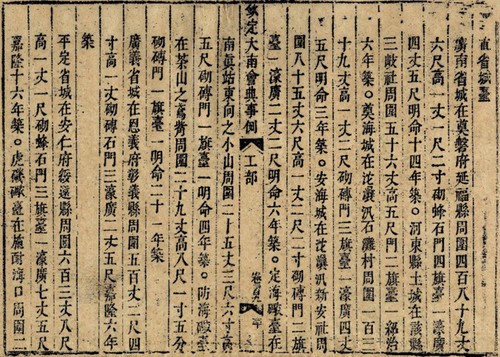 直省城臺
廣南省城在奠磐府延福縣周圍四百八十九丈
六尺高一丈一尺二寸砌蜂石門四旗臺一濠廣
四丈五尺明命十四年築。河東縣土城在該縣
三岐社周圍五十六丈高五尺門二旗臺一紹治
六年築。奠海城在沱㶞汛石灘村周圍一百三
十九丈高一丈二尺砌磚門三旗臺一濠廣四丈
五尺明命三年築。安海城在沱㶞汛新安社周
圍八十五丈六尺高一丈二尺二寸砌磚門二旗
臺一濠廣二丈二尺明命六年築。定海礮臺在
欽定大南會典事例 工部
南真站東向之小山周圍二十五丈三尺六寸高
五尺砌磚門一旗臺一明命四年築。防海礮臺
在茶山之高周圍二十九丈高八尺一寸五分
砌磚門一旗臺一明命二十一年築
廣義省城在思義府彰義縣周圍五百丈二尺四
寸高一丈砌磚石門三濠廣二丈五尺嘉隆六年
築
平定省城在安仁府綏遠縣周圍六百三丈八尺
高一丈一尺砌蜂石門三旗臺一濠廣七丈五尺
嘉隆十六年築。虎磯礮臺在施耐海口周圍二